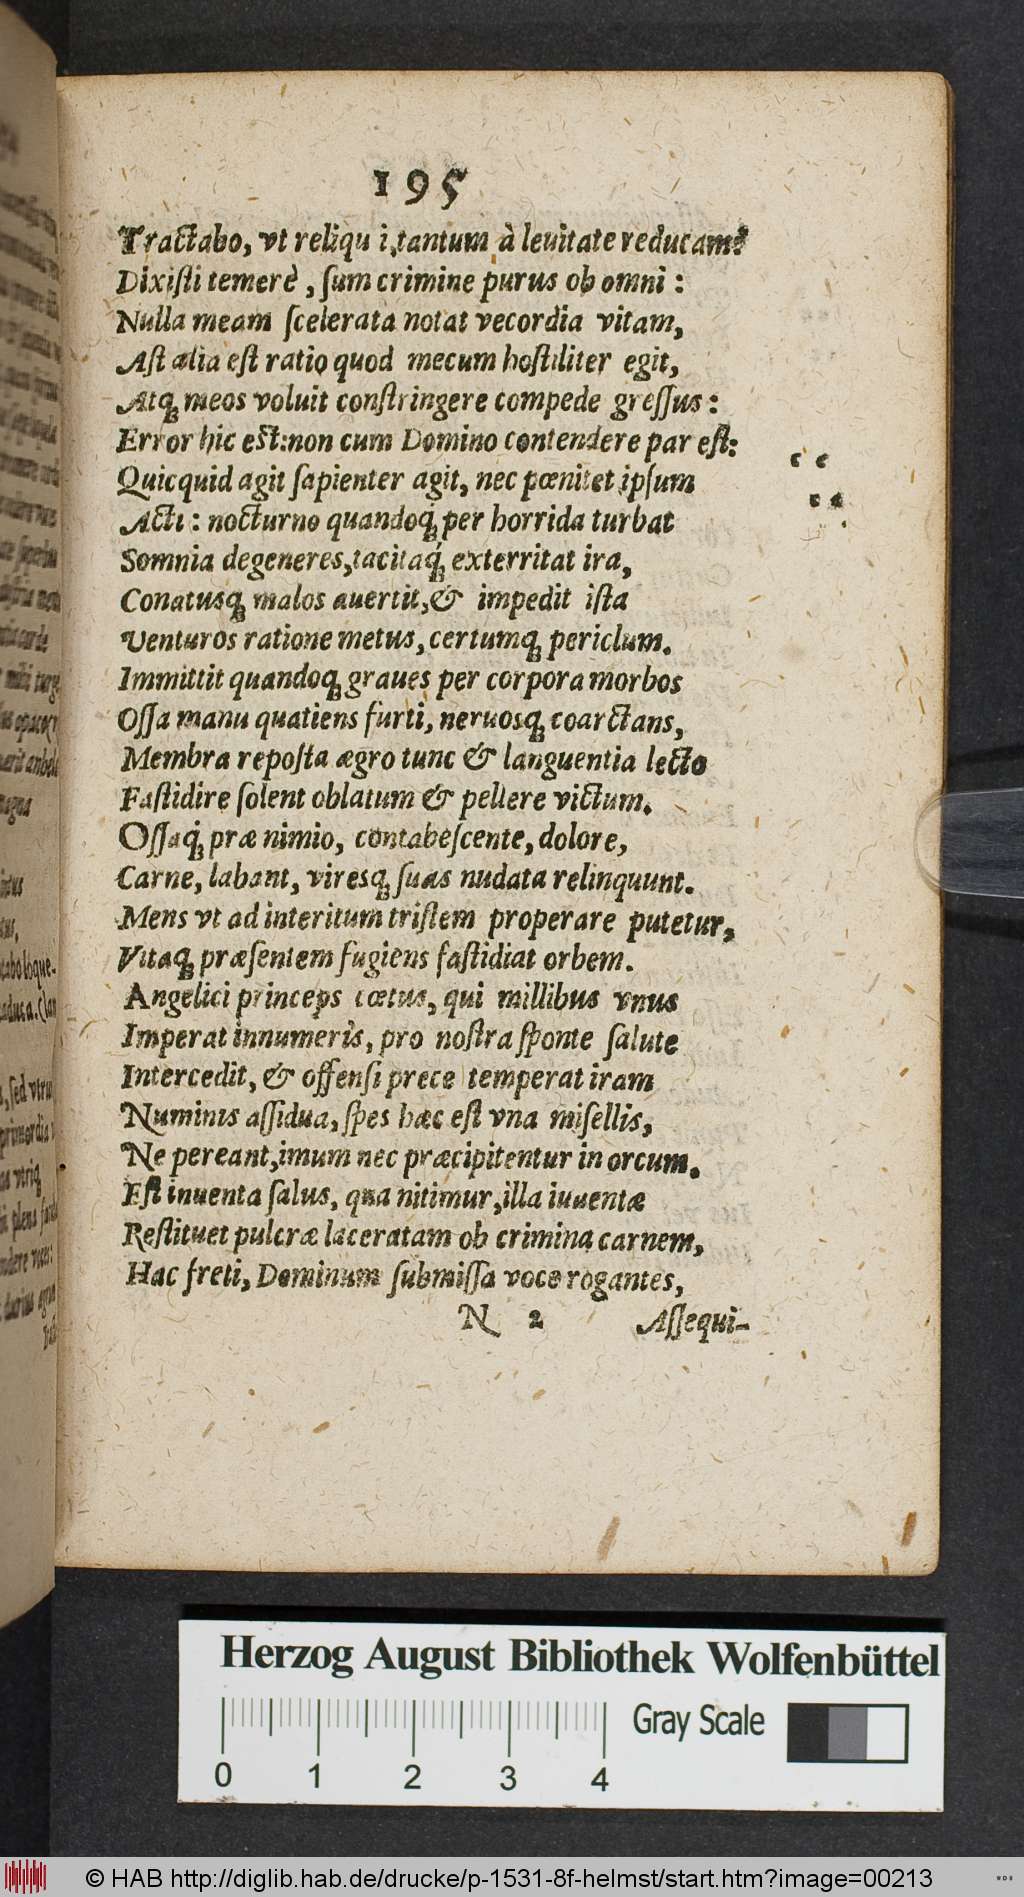 195
Tractabo, vt reliqu i, tantum à leuitate reducam?
Dixiſti temerè, ſum crimine purus ob omni:
Nulla meam ſcelerata notat vecordia vitam,
Aſt alia eſt ratio quod mecum hoſtiliter egit,
Atq; meos voluit conſtringere compede greſſus:
Error hic eſt: non cum Domino contendere par eſt:
Quicquid agit ſapienter agit, nec pœnitet ipſum
Acti: nocturno quandoq; per horrida turbat
Somnia degeneres, tacitaq́; exterritat ira,
Conatusq; malos auertit, & impedit iſta
Venturos ratione metus, certumq; periclum.
Immittit quandoq; graues per corpora morbos
Oſſa manu quatiens furti, neruosq; coarctans,
Membra repoſta ægro tunc & languentia lecto
Faſtidire ſolent oblatum & pellere victum.
Oſſaq́; præ nimio, contabeſcente, dolore,
Carne, labant, viresq; ſuas nudata relinquunt.
Mens vt ad interitum triſtem properare putetur,
Vitaq; præſentem fugiens faſtidiat orbem.
Angelici princeps cœtus, qui millibus vnus
Imperat innumeris, pro noſtra ſponte ſalute
Intercedit, & offenſi prece temperat iram
Numinis aſſidua, ſpes hæc eſt vna miſellis,
Ne pereant, imum nec præcipitentur in orcum.
Eſt inuenta ſalus, qua nitimur, illa iuuentæ
Reſtituet pulcræ laceratam ob crimina carnem,
Hac freti, Dominum ſubmiſſa voce rogantes,
N 2 Aſſequi-
Herzog August Bibliothek Wolfenbüttel
Gray Scale
0 1 2 3 4
© HAB http://diglib.hab.de/drucke/p-1531-8f-helmst/start.htm?image=00213